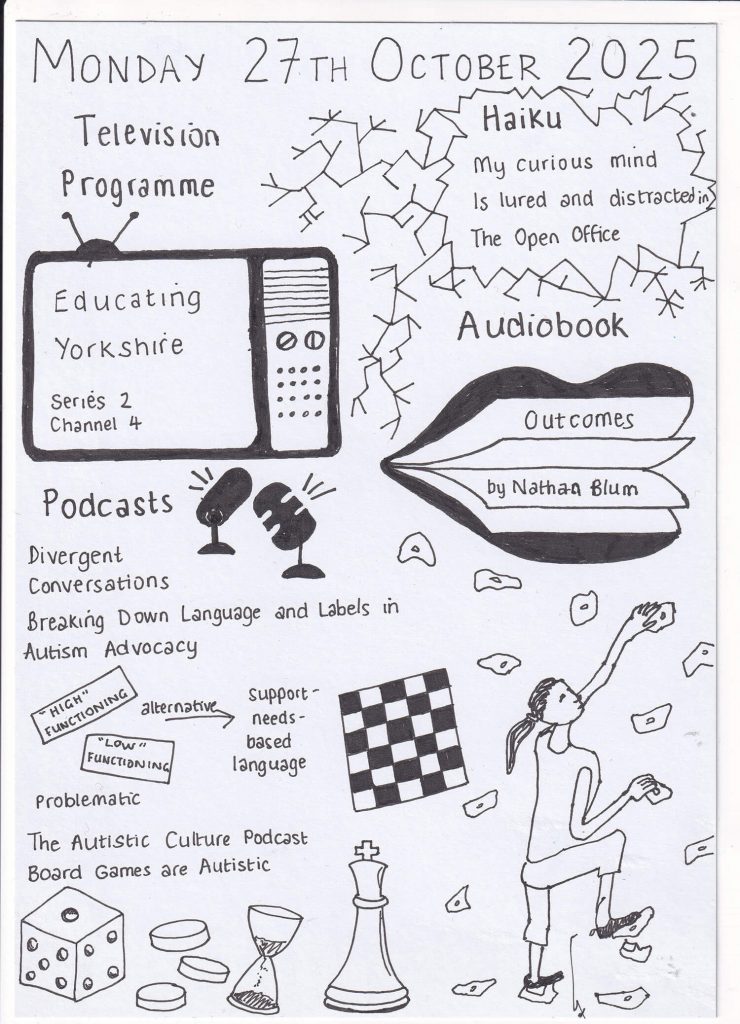 MONDAY 27TH OCTOBER 2025
Television
Programme
Educating
Yorkshire
Series 2
Channel 4
Haiku
My curious mind
Is lured and distracted in
The Open Office
Audiobook
Outcomes
by Nathan Blum
Podcasts
Divergent
Conversations
Breaking Down Language and Labels in
Autism Advocacy
"HIGH"
FUNCTIONING
"LOW"
FUNCTIONING
alternative
support-
needs-
based
language
Problematic
The Autistic Culture Podcast
Board Games are Autistic